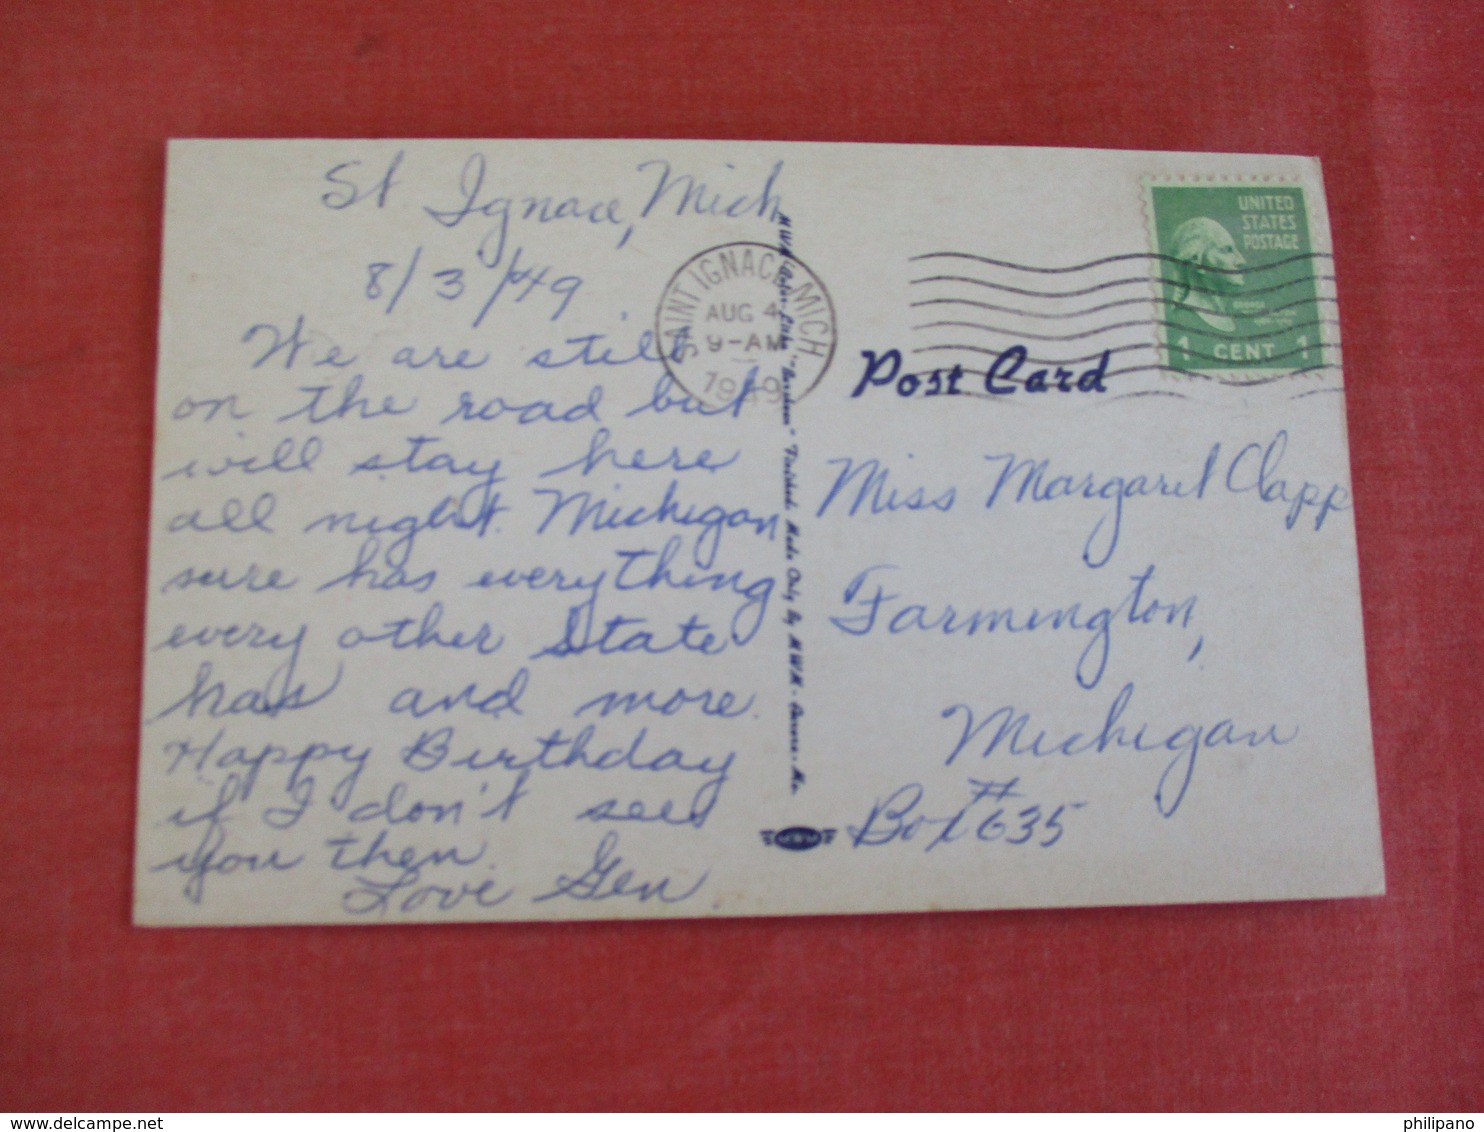 St Ignace, Mich
8/3/49
We are still
on the road but
will stay here
all night. Michigan
sure has everything
every other State
has and more.
Happy Birthday
if I don't see
you then.
Love Gen
SAINT IGNACE, MICH
AUG 4
9-AM
1949
MWM "Color-Litho" Finished. Made Only By MWM - Aurora - Mo.
MWM
Post Card
UNITED
STATES
POSTAGE
GEORGE
1 CENT 1
Miss Margaret Clapp
Farmington,
Michigan
Box #635
delcampe.net
philipano